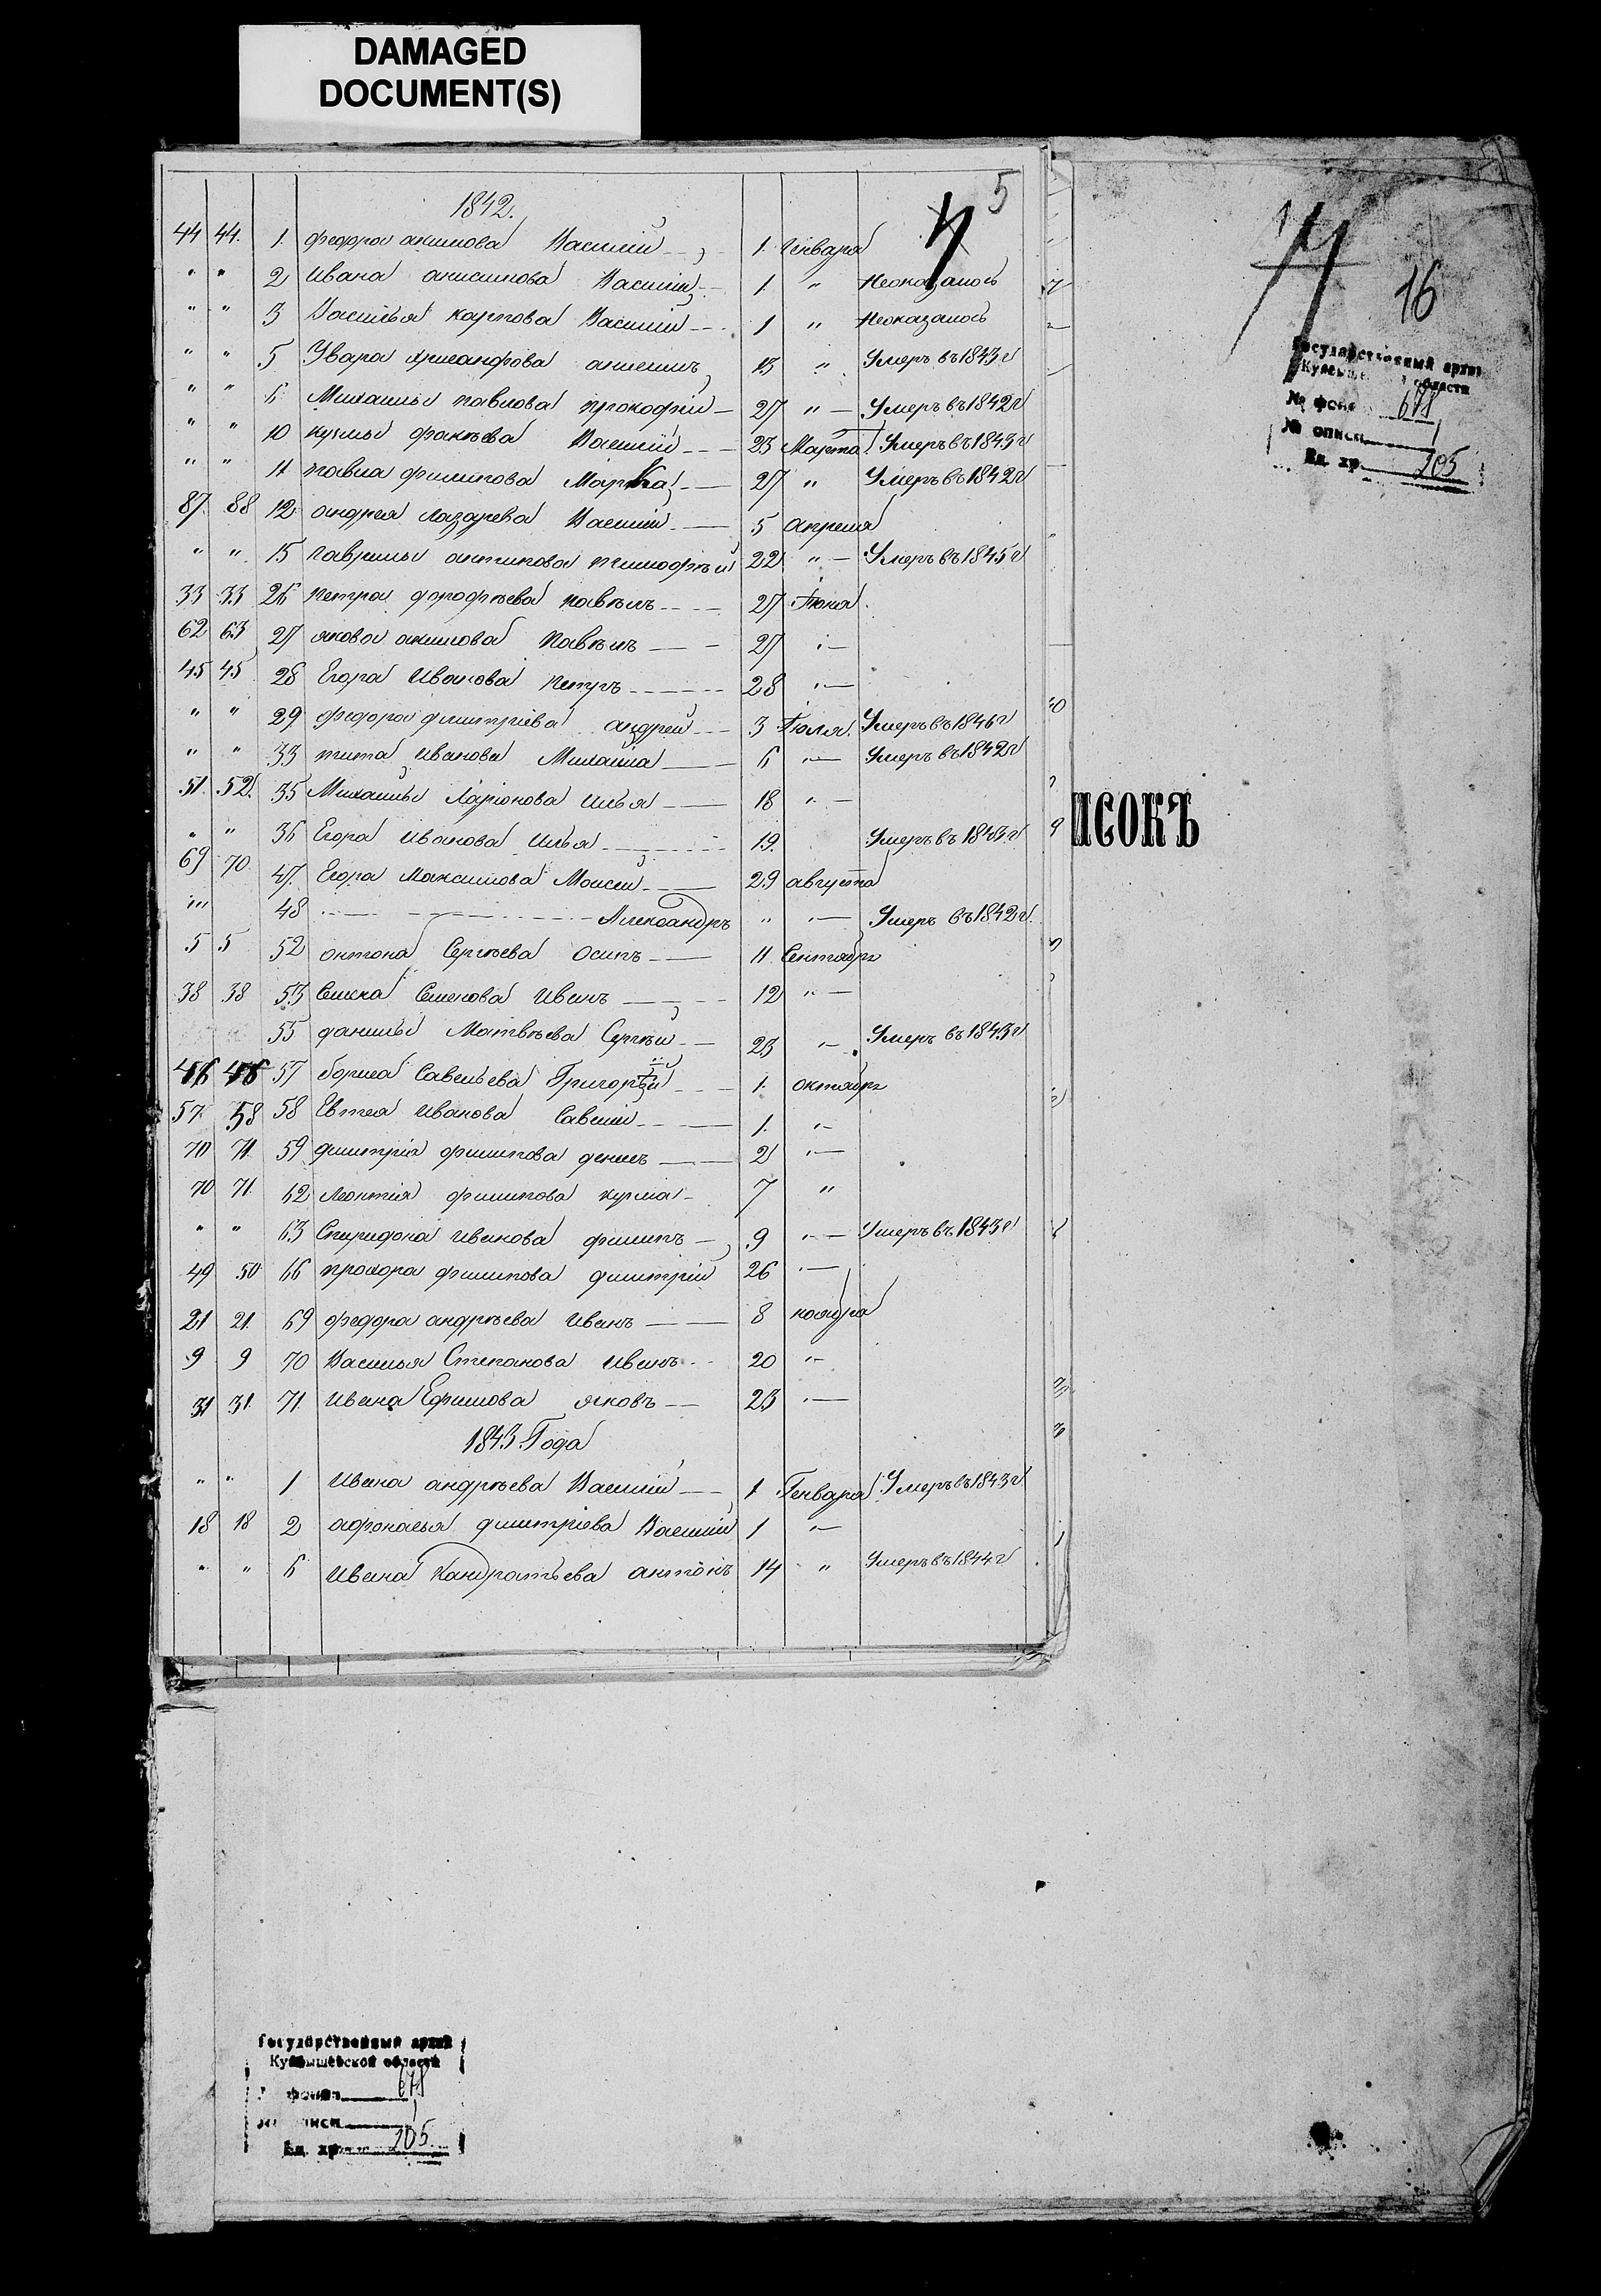 DAMAGED
DOCUMENT(S)
5
1842.
44 44. 1. федора акимова Василий 1. Генваря
" " 2 Ивана анисимова Василий 1. " Неоказалось
" " 3 Василья карпова Василий 1 " Неоказалось
" " 5 Увара 13 " Умеръ въ 1843 г
" " 6 Михаилы павлова прокофий 27 " Умеръ въ 1842 г
" " 10 кузмы факѣева Василий 23 Марта Умеръ въ 1843 г
" " 11 павла филипова Марка 27 " Умеръ въ 1842 г
87. 88 12 андрея лазарева Василий 5 апреля
" " 15 гаврилы антипова тимофѣй 22 " Умеръ въ 1845 г
33 33 26 петра дорофѣева павѣлъ 27 Іюня
62 63 27 якова акимова павѣлъ 27 "
45 45 28 Егора Иванова петръ 28 "
" " 29 федора дмитріева андрей 3 Іюля. Умеръ въ 1846 г
" " 33 тита Иванова Михаила 6 " Умеръ въ 1842 г
51. 52. 35 Михаилы Ларіонова Илья 18 "
" " 36 Егора Иванова Илья 19. Умеръ въ 1843 г
69 70 47. Егора Максимова Моисей 29 августа
" 48 Александръ " " Умеръ въ 1842 г.
5 5 52 антона Сергѣева Осипъ 11 Сентября
38 38 53 Семена Семенова Иванъ 12 "
55 данилы Матвѣева Сергѣй 23 " Умеръ въ 1843 г
46 46 57 бориса Савельева Григорій 1. октября
57. 58 58 Евтея Иванова Савелий 1. "
70 71. 59 дмитрія филипова денисъ 2 "
70 71. 62 Леонтія филипова кузма 7 "
" " 63 Спиридона Иванова филипъ 9 " Умеръ въ 1843 г
49 50 66 прохора филипова дмитрій 26 "
21 21. 69 федора андрѣева Иванъ 8 ноября
9 9 70 Василья Степанова Иванъ 20 "
31 31. 71. Ивана Ефимова яковъ 23 "
1843. Года
" " 1 Ивана андрѣева Василий 1 Генваря Умеръ въ 1843 г
18 18 2 афонасья дмитріева Василий 1 "
" " 6 Ивана Кандратьева антонъ 14 " Умеръ въ 1844 г
16
Государственный архив
Куйбышевской области
№ фонда 678
№ описи 1
Ед. хр. 205
ИСОКЪ
Государственный архив
Куйбышевской области
№ фонда 678
№ описи 1
Ед. хр. 205